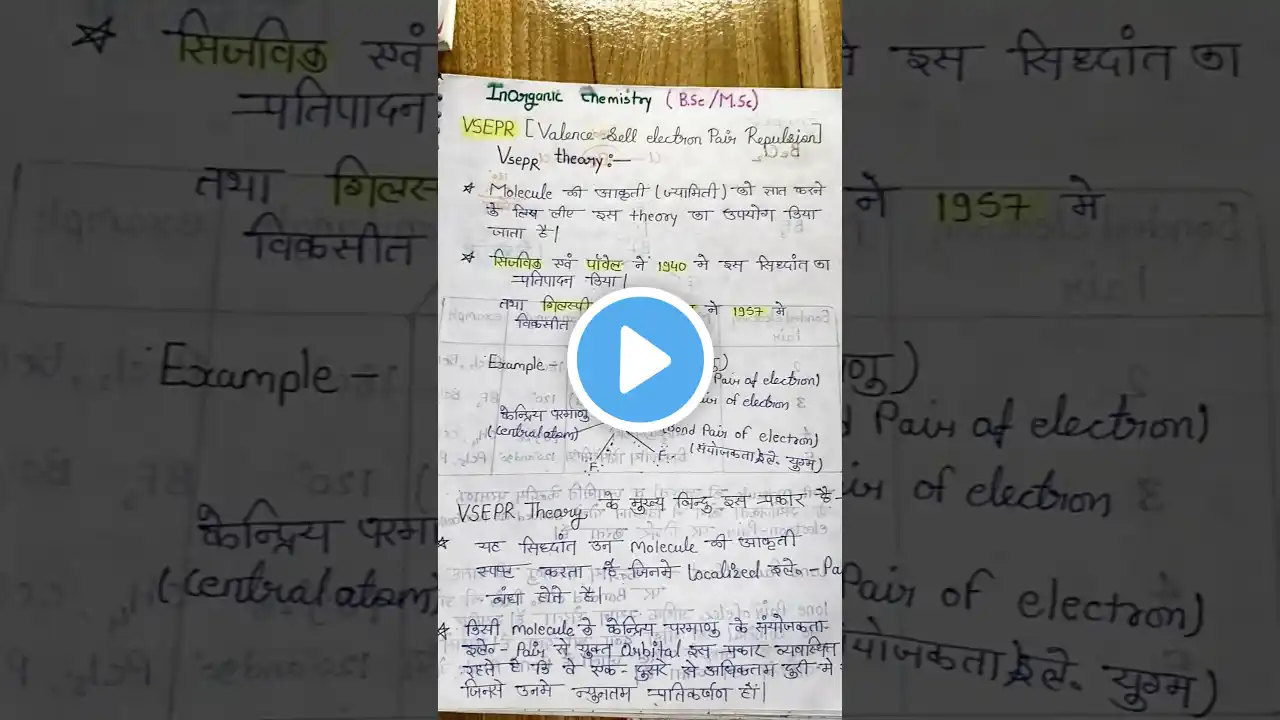 Inorganic Chemistry (B.Sc/M.Sc)
VSEPR [Valence Sell electron Pair Repulsion]
VSEPR theory:—
* Molecule की आकृती (ज्यामिती) को सात करने
के लिय लीए इस theory का उपयोग किया
जाता है।
* सिजविक एवं पॉवेल ने 1940 मे इस सिध्दांत का
प्रतिपादन किया।
तथा गिलस्पी ने 1957 मे
विकसीत
Example -
Pair of electron)
of electron
केन्द्रिय परमाणु
(Central atom)
(Bond Pair of electron)
(संयोजकता इले. युग्म)
F F
VSEPR Theory के मुख्य बिन्दु इस प्रकार है -
* यह सिध्दांत उन Molecule की आकृती
स्पष्ट करता है जिनमे Localized इले०-Pa
बंधी होते है।
* किसी molecule के केन्द्रिय परमाणु के संयोजकता-
इले०-Pair से युक्त Orbital इस प्रकार व्यवस्थित
रहते है वे एक-दुसरे से अधिकतम दुरी मे
जिनसे उनमे न्युनतम प्रतिकर्षण हों।